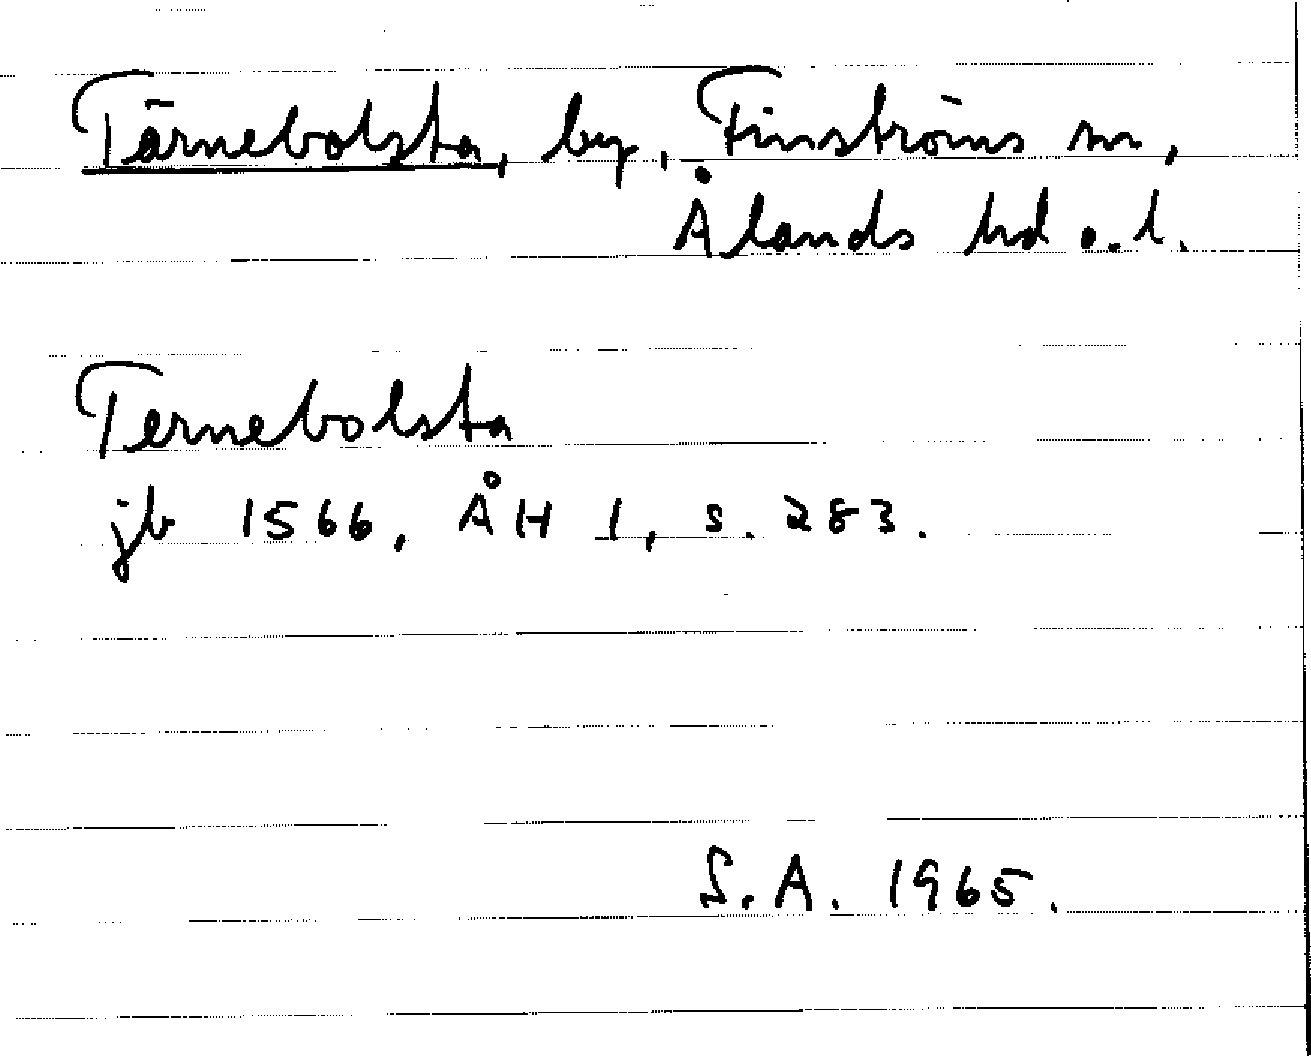 Tärnebolsta, by, Finströms sn,
Ålands hd o. l.
Ternebolsta
jb 1566, ÅH 1, s. 283.
S. A. 1965.